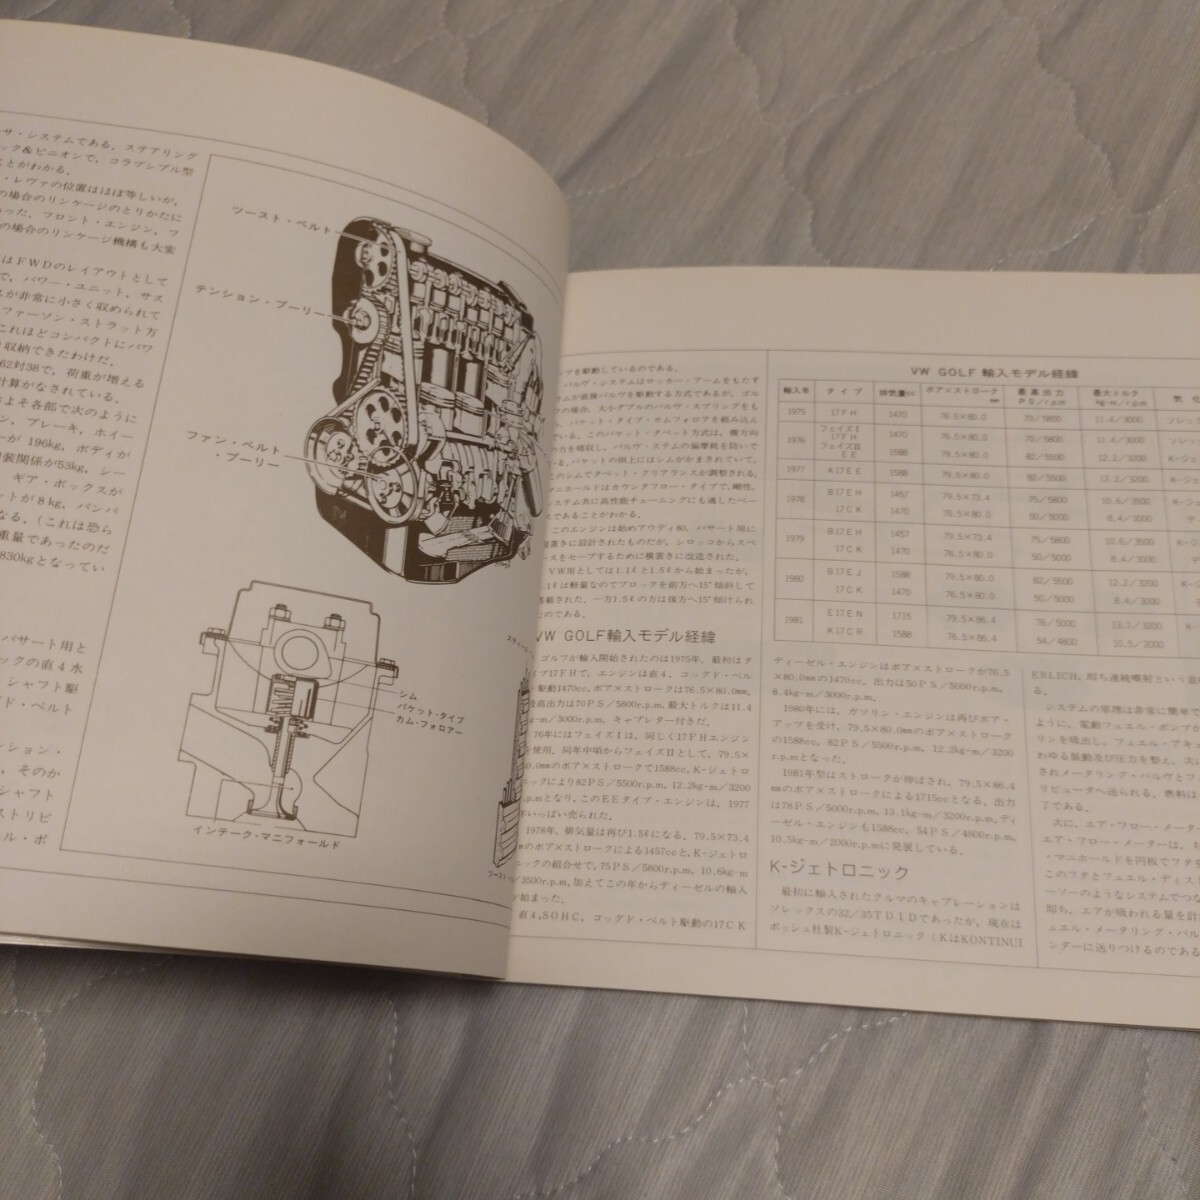 サ・システムである。ステアリング
ック&ピニオンで、コラプシブル型
とがわかる。
・レヴァの位置はほぼ等しいが、
の場合のリンケージのとりかたに
った。フロント・エンジン、フ
の場合のリンケージ機構も大変
はFWDのレイアウトとして
で、パワー・ユニット、サス
が非常に小さく収められて
ファーソン・ストラット方
これほどコンパクトにパワ
収納できたわけだ。
62対38で、荷重が増える
計算がなされている。
よそ各部で次のように
ン、ブレーキ、ホイー
ーが 196kg、ボディが
装関係が53kg、シー
ギア・ボックスが
ットが8kg、バンパ
なる。(これは恐ら
重量であったのだ
830kgとなってい
パサート用と
ックの直4水
シャフト駆
ド・ベルト
ンション・
、そのか
シャフト
ストリビ
ル・ポ
ツースト・ベルト
テンション・プーリー
ファン・ベルト
・プーリー
シム
バケット・タイプ
カム・フォロアー
インテーク・マニフォールド
プを駆動しているのである。
バルヴ・システムはロッカー・アームをもたず
ムが直接バルヴを駆動する方式であるが、ゴル
フの場合、大小ダブルのバルヴ・スプリングをも
、バケット・タイプ・カムフォロアを組み込ん
ている。このバケット・タペット方式は、横方向
の力を吸収し、バルヴ・システムの偏摩耗を防いで
いる。バケットの頭上にはシムがかまされていて、
このシムでタペット・クリアランスが調整される。
マニホールドはカウンタフロー・タイプで、剛性、
システム共に高性能チューニングにも適したベー
スであることがわかる。
このエンジンは始めアウディ80、パサート用に
縦置きに設計されたものだが、シロッコからスペ
ースをセーブするために横置きに改造された。
VW用としては1.1ℓと1.5ℓから始まったが、
1.1ℓは軽量なのでブロックを前方へ15°傾斜して
搭載された。一方1.5ℓの方は後方へ15°傾けられ
たのである。
VW GOLF輸入モデル経緯
ゴルフが輸入開始されたのは1975年、最初はタ
イプ17FHで、エンジンは直4、コッグド・ベル
ト駆動1470cc、ボア×ストロークは76.5×80.0mm、
最高出力は70PS/5800r.p.m、最大トルクは11.4
kg-m/3000r.p.m、キャブレター付きだ。
76年にはフェイズIは、同じく17FHエンジン
を使用、同年中頃からフェイズIIとして、79.5×
80.0mmのボア×ストロークで1588cc、K-ジェトロ
ニックにより82PS/5500r.p.m、12.2kg-m/3200
r.p.mとなり、このEEタイプ・エンジンは、1977
年いっぱい売られた。
1978年、排気量は再び1.5ℓになる。79.5×73.4
mmのボア×ストロークによる1457ccと、K-ジェトロ
ニックの組合せで、75PS/5800r.p.m、10.6kg-m
/3500r.p.m、加えてこの年からディーゼルの輸入
が始まった。
直4、SOHC、コッグド・ベルト駆動の17CK
VW GOLF 輸入モデル経緯
輸入年 タイプ 排気量cc ボア×ストローク mm 最高出力 PS/r.p.m 最大トルク kg-m/r.p.m 気 化
1975 17FH 1470 76.5×80.0 70/5800 11.4/3000 ソレッ
1976 フェイズI 17FH 1470 76.5×80.0 70/5800 11.4/3000 ソレックス
フェイズII EE 1588 79.5×80.0 82/5500 12.2/3200 K-ジェ
1977 A17EE 1588 79.5×80.0 82/5500 13.2/3200 K-ジェ
1978 B17EH 1457 79.5×73.4 75/5800 10.6/3500 K-ジ
17CK 1470 76.5×80.0 50/5000 8.4/3000 デ
1979 B17EH 1457 79.5×73.4 75/5800 10.6/3500 K-ジ
17CK 1470 76.5×80.0 50/5000 8.4/3000 デ
1980 B17EJ 1588 79.5×80.0 82/5500 12.2/3200 K-
17CK 1470 76.5×80.0 50/5000 8.4/3000 デ
1981 E17EN 1715 79.5×86.4 78/5000 13.1/3200 K-
K17CR 1588 76.5×86.4 54/4800 10.5/2000
ディーゼル・エンジンはボア×ストロークが76.5
×80.0mmの1470cc、出力は50PS/5000r.p.m、
8.4kg-m/3000r.p.m。
1980年には、ガソリン・エンジンは再びボア・
アップを受け、79.5×80.0mmのボア×ストローク
の1588cc、82PS/5500r.p.m、12.2kg-m/3200
r.p.mとなった。
1981年型はストロークが伸ばされ、79.5×86.4
mmのボア×ストロークによる1715ccとなる。出力
は78PS/5000r.p.m、13.1kg-m/3200r.p.m、ディ
ーゼル・エンジンも1588cc、54PS/4800r.p.m、
10.5kg-m/2000r.p.mに発展している。
K-ジェトロニック
最初に輸入されたクルマのキャブレーションは
ソレックスの32/35TDIDであったが、現在は
ボッシュ社製K-ジェトロニック(KはKONTINUI
ERLICH、即ち連続噴射という意
る。
システムの原理は非常に簡単で
ように、電動フュエル・ポンプか
リンを吸出し、フュエル・アキュ
わゆる振動及び圧力を整え、次に
されメータリング・バルヴとフ
リビュータへ送られる。燃料は
了である。
次に、エア・フロー・メータ
エア・フロー・メーターは、
・マニホールドを円板でフタを
このフタとフュエル・ディスト
ーソーのようなシステムでつな
即ち、エアが吸われる量を計
ュエル・メータリング・バル
ンダーに送りつけるのである